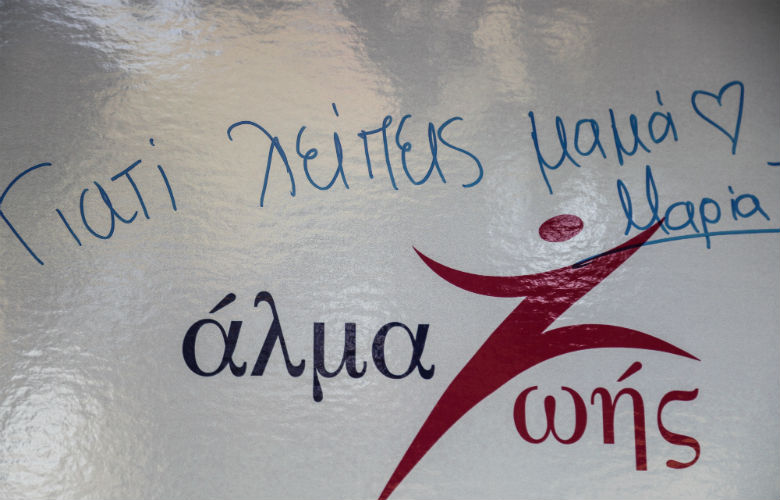 Γιατί λείπεις μαμά ♡
Μαρία
άλμα
Ζωής